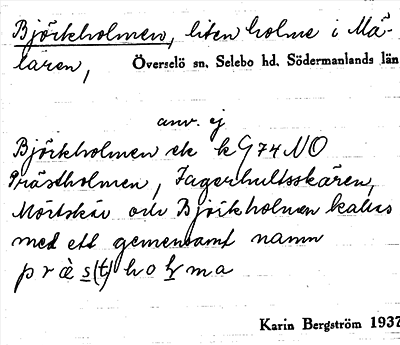 Björkholmen, liten holme i Mä-
laren, Överselö sn. Selebo hd. Södermanlands län
anv. ej
Björkholmen ek kG74NO
Prästholmen, Fagerhultsskären,
Mörtskär och Björkholmen kallas
med ett gemensamt namn
p r æ̀ s(t) h o l m a
Karin Bergström 1937